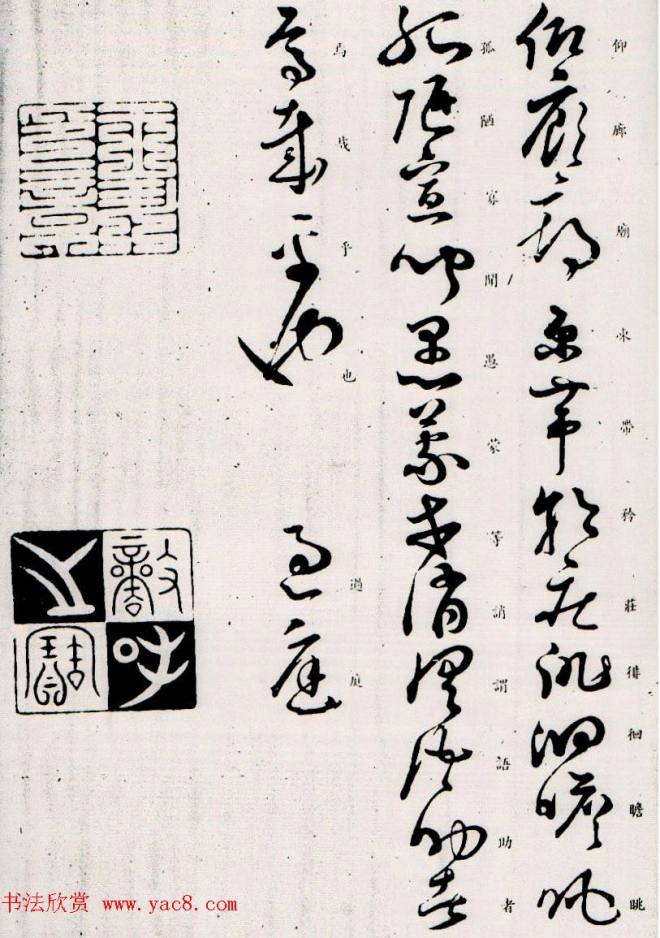 仰廊廟束帶矜莊徘徊瞻眺
孤陋寡聞愚蒙等誚謂語助者
焉哉乎也
過庭
书法欣赏 www.yac8.com